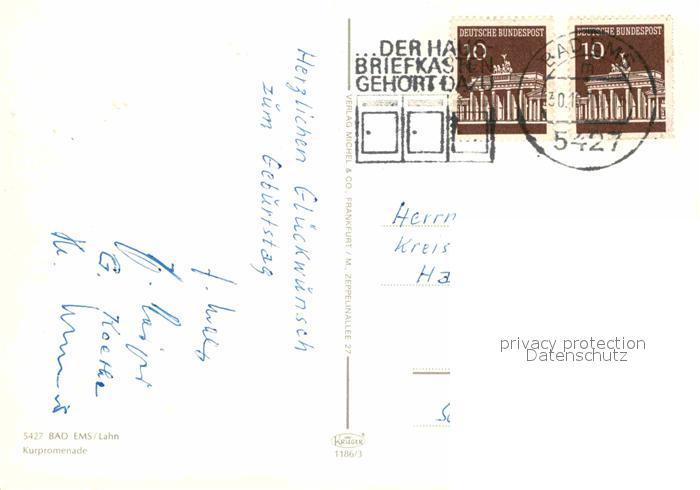 ...DER HAUS
BRIEFKASTEN
GEHÖRT DAZU
DEUTSCHE BUNDESPOST
10
DEUTSCHE BUNDESPOST
10
BAD EMS
30.
5427
Herzlichen Glückwünsch
zum Gebürtstag
G. Koethe
VERLAG MICHEL & CO., FRANKFURT/M., ZEPPELINALLEE 27
Herrn
Kreis
Ha
privacy protection
Datenschutz
5427 BAD EMS/Lahn
Kurpromenade
KRÜGER
1186/3